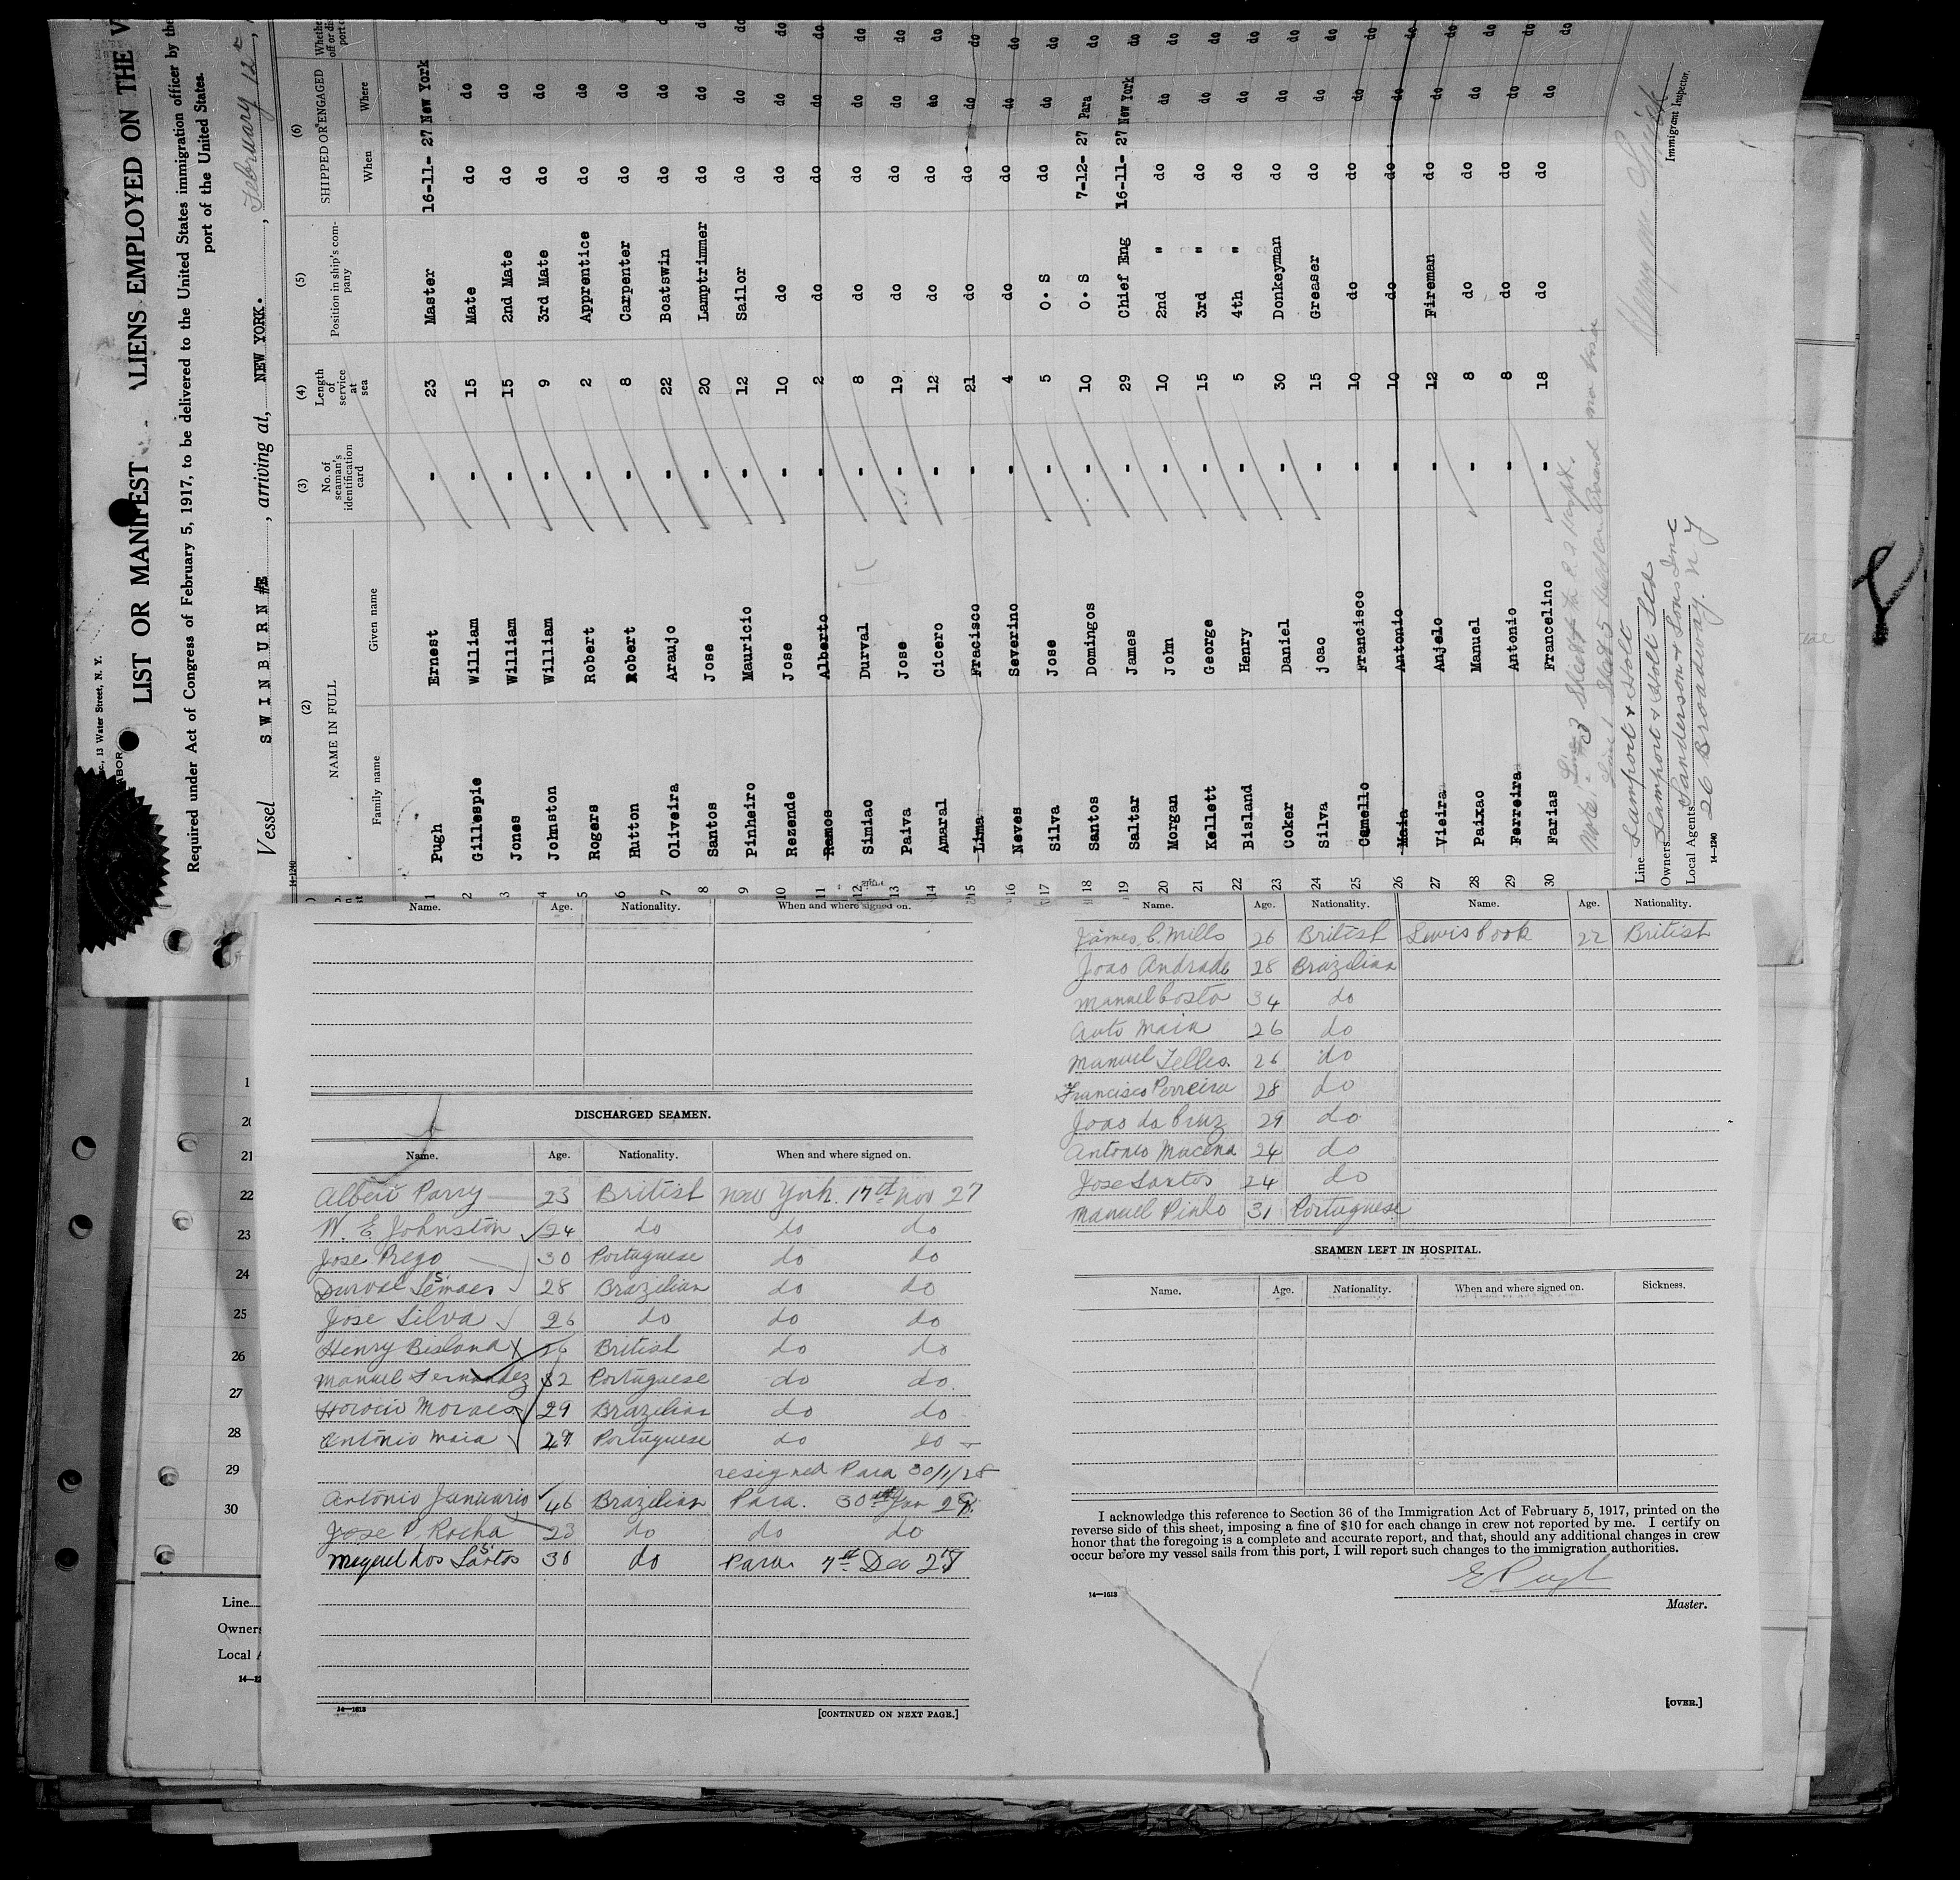 c., 13 Water Street, N. Y.
LABOR
LIST OR MANIFEST ALIENS EMPLOYED ON THE V
Required under Act of Congress of February 5, 1917, to be delivered to the United States immigration officer by the
port of the United States.
Vessel SWINBURNE, arriving at, NEW YORK., February 12
14-1240
(2) (3) (4) (5) (6)
NAME IN FULL No. of seaman's identification card Length of service at sea Position in ship's company SHIPPED OR ENGAGED
Family name Given name When Where
1 Pugh Ernest - 23 Master 16-11-27 New York
2 Gillespie William - 15 Mate do do
3 Jones William - 15 2nd Mate do do
4 Johnston William - 9 3rd Mate do do
5 Rogers Robert - 2 Apprentice do do
6 Hutton Robert - 8 Carpenter do do
7 Oliveira Araujo - 22 Boatswin do do
8 Santos Jose - 20 Lamptrimmer do do do
9 Pinheiro Mauricio - 12 Sailor do do do
10 Rezende Jose - 10 do do do do
11 Ramos Alberto - 2 do do do do
12 Simiao Durval - 8 do do do do
13 Paiva Jose - 19 do do do do
14 Amaral Cicero - 12 do do do do
15 Lima Fracisco - 21 do do do do
16 Neves Severino - 4 do do do do
17 Silva Jose - 5 O.S do do do
18 Santos Domingos - 10 O.S 7-12-27 Para do
19 Saltar James - 29 Chief Eng 16-11-27 New York do
20 Morgan John - 10 2nd " do do do
21 Kellett George - 15 3rd " do do do
22 Bisland Henry - 5 4th " do do do
23 Coker Daniel - 30 Donkeyman do do do
24 Silva joao - 15 Greaser do do do
25 Camello Francisco - 10 do do do do
26 Maia Antonio - 10 do do do do
27 Vieira Anjelo - 12 Fireman do do do
28 Paixao Manuel - 8 do do do do
29 Ferreira Antonio - 8 do do do do
30 Farias Francelino - 18 do do do do
Line Lamport & Holt
Owners Lamport & Holt Ltd
Local Agents Sanderson & Sons Inc
26 Broadway. N Y
14-1240
Immigrant Inspector.
Name. Age. Nationality. When and where signed on.
DISCHARGED SEAMEN.
Name. Age. Nationality. When and where signed on.
Albert Parry 23 British New York. 17th Nov 27
W. E Johnston 24 do do do
Jose Rego 30 Portuguese do do
Durval Semaes 28 Brazilian do do
Jose Silva 26 do do do
Henry Bisland British do do
Manuel Fernandez 32 Portuguese do do
Horacio Moraes 29 Brazilian do do
Antonio Maia 29 Portuguese do do
resigned Para 30/1/28
Antonio Januario 46 Brazilian Para. 30th Jan 28.
Jose P. Rocha 23 do do do
Miguel dos Santos 30 do Para. 7th Dec 27
14-1613
[CONTINUED ON NEXT PAGE.]
Name. Age. Nationality. Name. Age. Nationality.
James C. Mills 26 British Lewis Cook 22 British
Joao Andrade 28 Brazilian
Manuel Costa 34 do
Anto Maia 26 do
Manuel Telles. 26 do
Francisco Perreira 28 do
Joao da Cruz 29 do
Antonio Macena 24 do
Jose Santos 24 do
Manuel Pinho 31 Portuguese
SEAMEN LEFT IN HOSPITAL.
Name. Age. Nationality. When and where signed on. Sickness.
I acknowledge this reference to Section 36 of the Immigration Act of February 5, 1917, printed on the
reverse side of this sheet, imposing a fine of $10 for each change in crew not reported by me. I certify on
honor that the foregoing is a complete and accurate report, and that, should any additional changes in crew
occur before my vessel sails from this port, I will report such changes to the immigration authorities.
E Pugh
Master.
14-1613
[OVER.]
1
20
21
22
23
24
25
26
27
28
29
30
Line
Owners
Local A
14-12